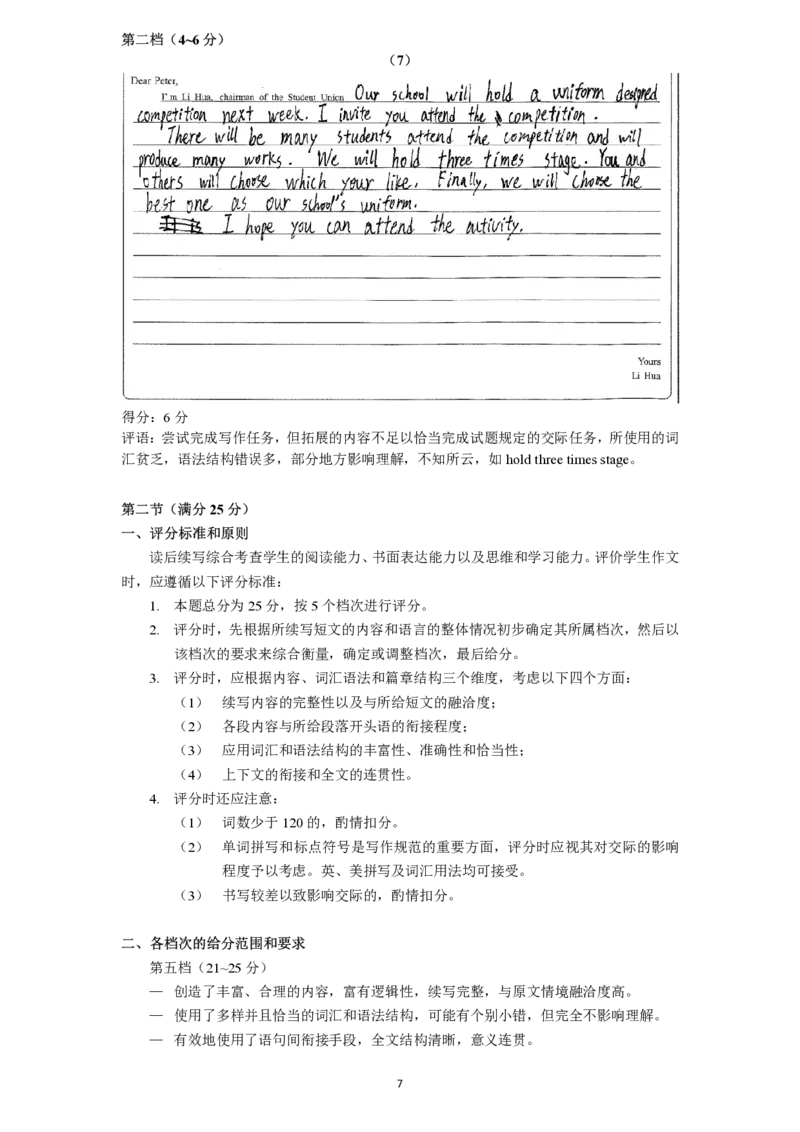 第二档（4~6 分）
（7）
Dear Peter,
I'm Li Hua, chairman of the Student Union Our school will hold a uniform designed
competition next week. I invite you attend the competition.
There will be many students attend the competition and will
produce many works. We will hold three times stage. You and
others will choose which your like. Finally, we will choose the
best one as our school's uniform.
I hope you can attend the autivity.
Yours
Li Hua
得分：6 分
评语：尝试完成写作任务，但拓展的内容不足以恰当完成试题规定的交际任务，所使用的词
汇贫乏，语法结构错误多，部分地方影响理解，不知所云，如 hold three times stage。
第二节（满分 25 分）
一、评分标准和原则
读后续写综合考查学生的阅读能力、书面表达能力以及思维和学习能力。评价学生作文
时，应遵循以下评分标准：
1. 本题总分为 25 分，按 5 个档次进行评分。
2. 评分时，先根据所续写短文的内容和语言的整体情况初步确定其所属档次，然后以
该档次的要求来综合衡量，确定或调整档次，最后给分。
3. 评分时，应根据内容、词汇语法和篇章结构三个维度，考虑以下四个方面：
（1） 续写内容的完整性以及与所给短文的融洽度；
（2） 各段内容与所给段落开头语的衔接程度；
（3） 应用词汇和语法结构的丰富性、准确性和恰当性；
（4） 上下文的衔接和全文的连贯性。
4. 评分时还应注意：
（1） 词数少于 120 的，酌情扣分。
（2） 单词拼写和标点符号是写作规范的重要方面，评分时应视其对交际的影响
程度予以考虑。英、美拼写及词汇用法均可接受。
（3） 书写较差以致影响交际的，酌情扣分。
二、各档次的给分范围和要求
第五档（21~25 分）
— 创造了丰富、合理的内容，富有逻辑性，续写完整，与原文情境融洽度高。
— 使用了多样并且恰当的词汇和语法结构，可能有个别小错，但完全不影响理解。
— 有效地使用了语句间衔接手段，全文结构清晰，意义连贯。
7